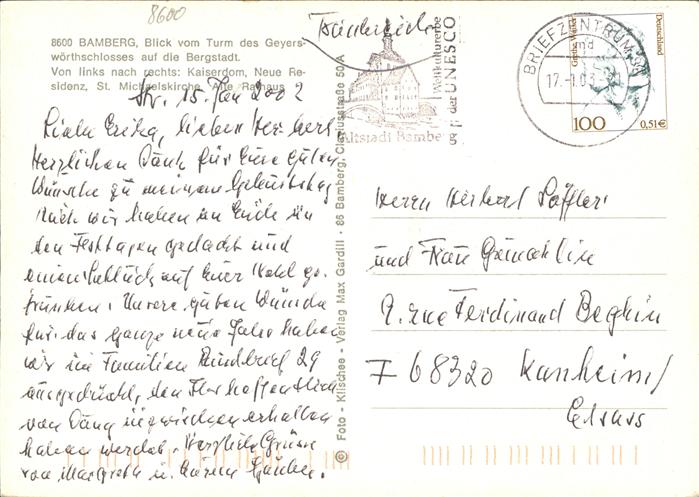 8600
8600 BAMBERG, Blick vom Turm des Geyers-
wörthschlosses auf die Bergstadt.
Von links nach rechts: Kaiserdom, Neue Re-
sidenz, St. Michaelskirche, Alte Rathaus
15. Jan 2002
Liebe Erika, lieber Herbert
Herzlichen Dank für Eure guten
Wünsche zu meinem Geburtstag
Auch wir haben an Euch in
den Festtagen gedacht und
einen Schluck auf Euer Wohl ge-
trunken. Unsere guten Wünsche
für das ganze neue Jahr haben
wir im Familien Rundbrief 29
ausgedrückt, den Ihr hoffentlich
von inzwischen erhalten
haben werdet. Herzliche Grüsse
von Margrete u. Eurem
© Foto - Klischee - Verlag Max Gardill · 86 Bamberg, 50/A
Altstadt Bamberg
Weltkulturerbe
der UNESCO
BRIEFZENTRUM
md
17.-1.03
Deutschland
100
0,51€
Herrn Herbert Löffler
und Frau Gemahlin
9. rue Ferdinand Beghin
F 68320 Kunheim
Elsass